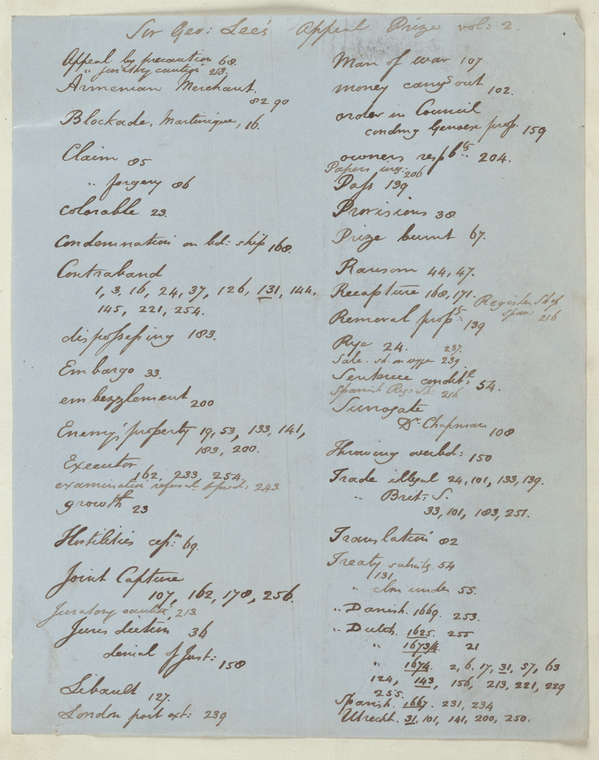 Sir Geo: Lee's Appeal Prize vol: 2.
Appeal by precaution 68.
" juratory caution 213.
Armenian Merchant.
82 90
Blockade. Martinique, 16.
Claim 85
" forgery 86
Colorable 23.
Condemnation on bel: ship 168.
Contraband
1, 3, 16, 24, 37, 126, 131, 144,
145, 221, 254.
dispossessing 183.
Embargo 33.
embezzlement 200
Enemy's property 19, 53, 133, 141,
183, 200.
Executor
162, 233, 254.
examination 243
growth 23
Hostilities cess:n 69.
Joint Capture
107, 162, 178, 256.
Juratory caution, 213.
Jurisdiction 36
denial of Just: 158
Libault 127.
London port ext: 239
Man of war 107
money carry'd out 102.
order in Council
concling Genoese prop. 159
owners respb:ty 204.
Papers 206
Pass 139
Provisions 38
Prize burnt 67.
Ransom 44, 47.
Recapture 168, 171.
Register Ship
Span: 216
Removal prop:ty 139
Rye 24. 237.
Sale. sh. on voyge 239
Sentence condit:l 54.
Spanish Reg: Sh. 216
Surrogate
Dr. Chapman 108
Throwing overbd: 150
Trade illegal 24, 101, 133, 139.
" Brit: S.
33, 101, 183, 251.
Translation 82
Treaty 54
131
" under 55.
" Danish. 1669. 253.
" Dutch. 1625. 255
" 1673/4. 21
" 1674. 2, 6, 17, 31, 57, 63
124, 143, 156, 213, 221, 229
255.
Spanish. 1667. 231, 234
Utrecht. 31, 101, 141, 200, 250.